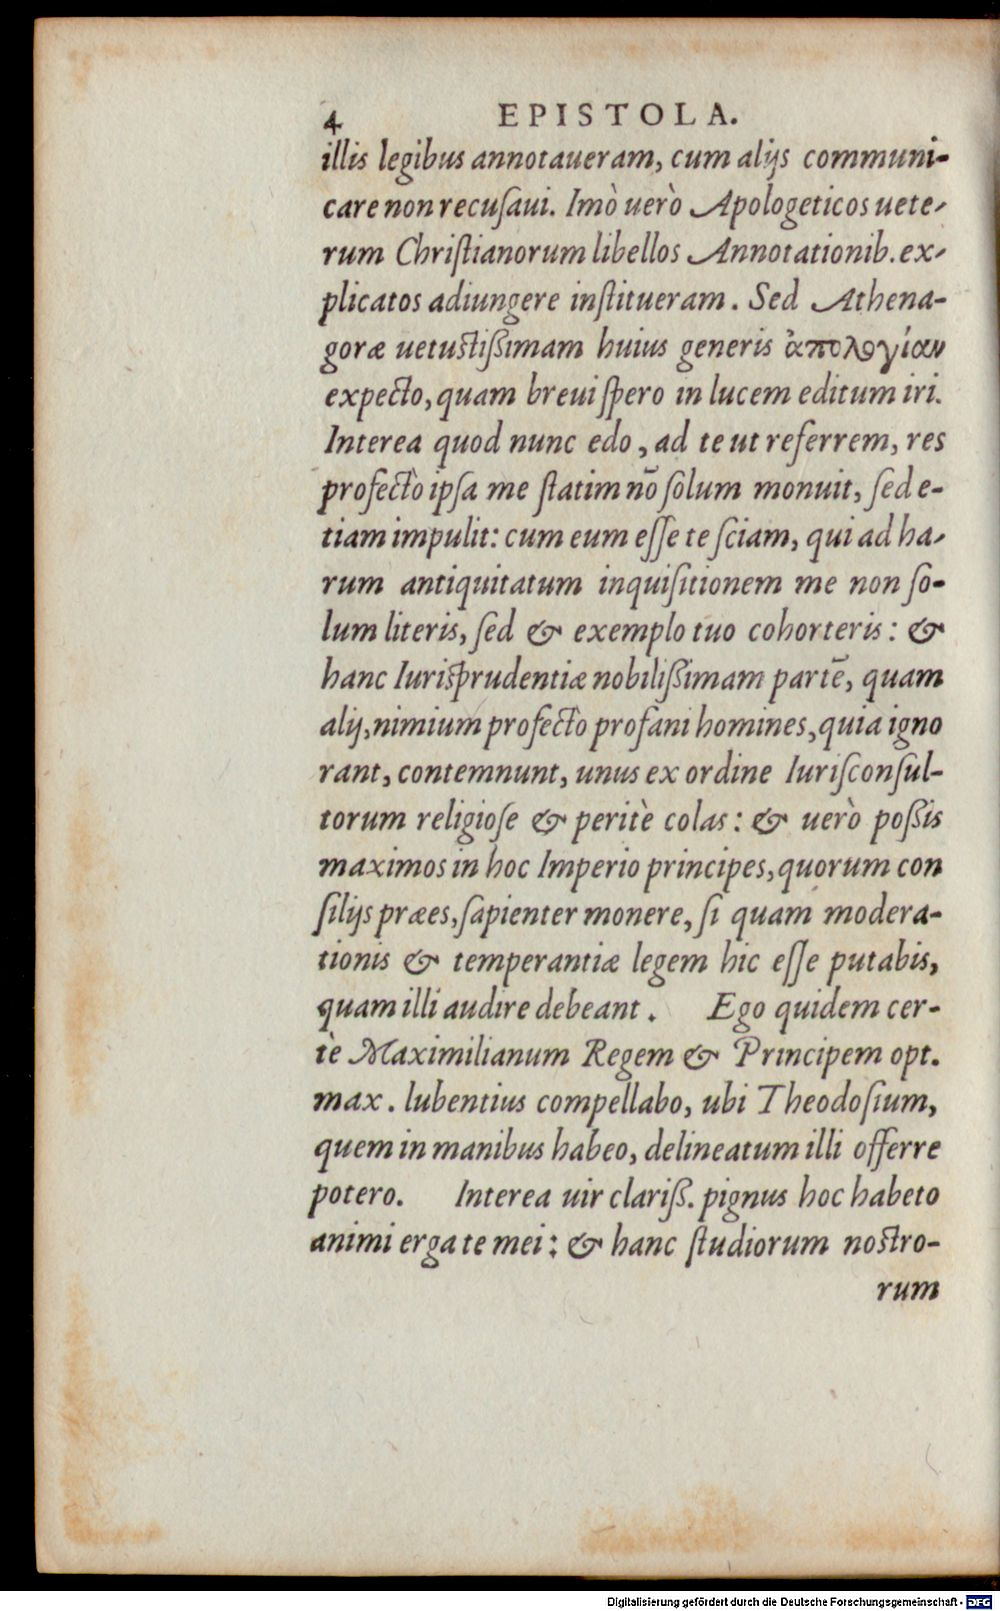 4 EPISTOLA.
illis legibus annotaueram, cum alijs communi-
care non recuſaui. Imò uerò Apologeticos uete-
rum Chriſtianorum libellos Annotationib. ex-
plicatos adiungere inſtitueram. Sed Athena-
goræ uetustißimam huius generis ἀπολογίαν
expecto, quam breui ſpero in lucem editum iri.
Interea quod nunc edo, ad te ut referrem, res
profectò ipſa me ſtatim nō ſolum monuit, ſed e-
tiam impulit: cum eum eſſe te ſciam, qui ad ha-
rum antiquitatum inquiſitionem me non ſo-
lum literis, ſed & exemplo tuo cohorteris: &
hanc Iurisprudentiæ nobilißimam partē, quam
alij, nimium profectò profani homines, quia igno
rant, contemnunt, unus ex ordine Iuriſconſul-
torum religioſe & peritè colas: & uerò poßis
maximos in hoc Imperio principes, quorum con
ſilijs præes, ſapienter monere, ſi quam modera-
tionis & temperantiæ legem hic eſſe putabis,
quam illi audire debeant. Ego quidem cer-
tè Maximilianum Regem & Principem opt.
max. lubentius compellabo, ubi Theodoſium,
quem in manibus habeo, delineatum illi offerre
potero. Interea uir clariß. pignus hoc habeto
animi erga te mei: & hanc ſtudiorum nostro-
rum
Digitalisierung gefördert durch die Deutsche Forschungsgemeinschaft - DFG